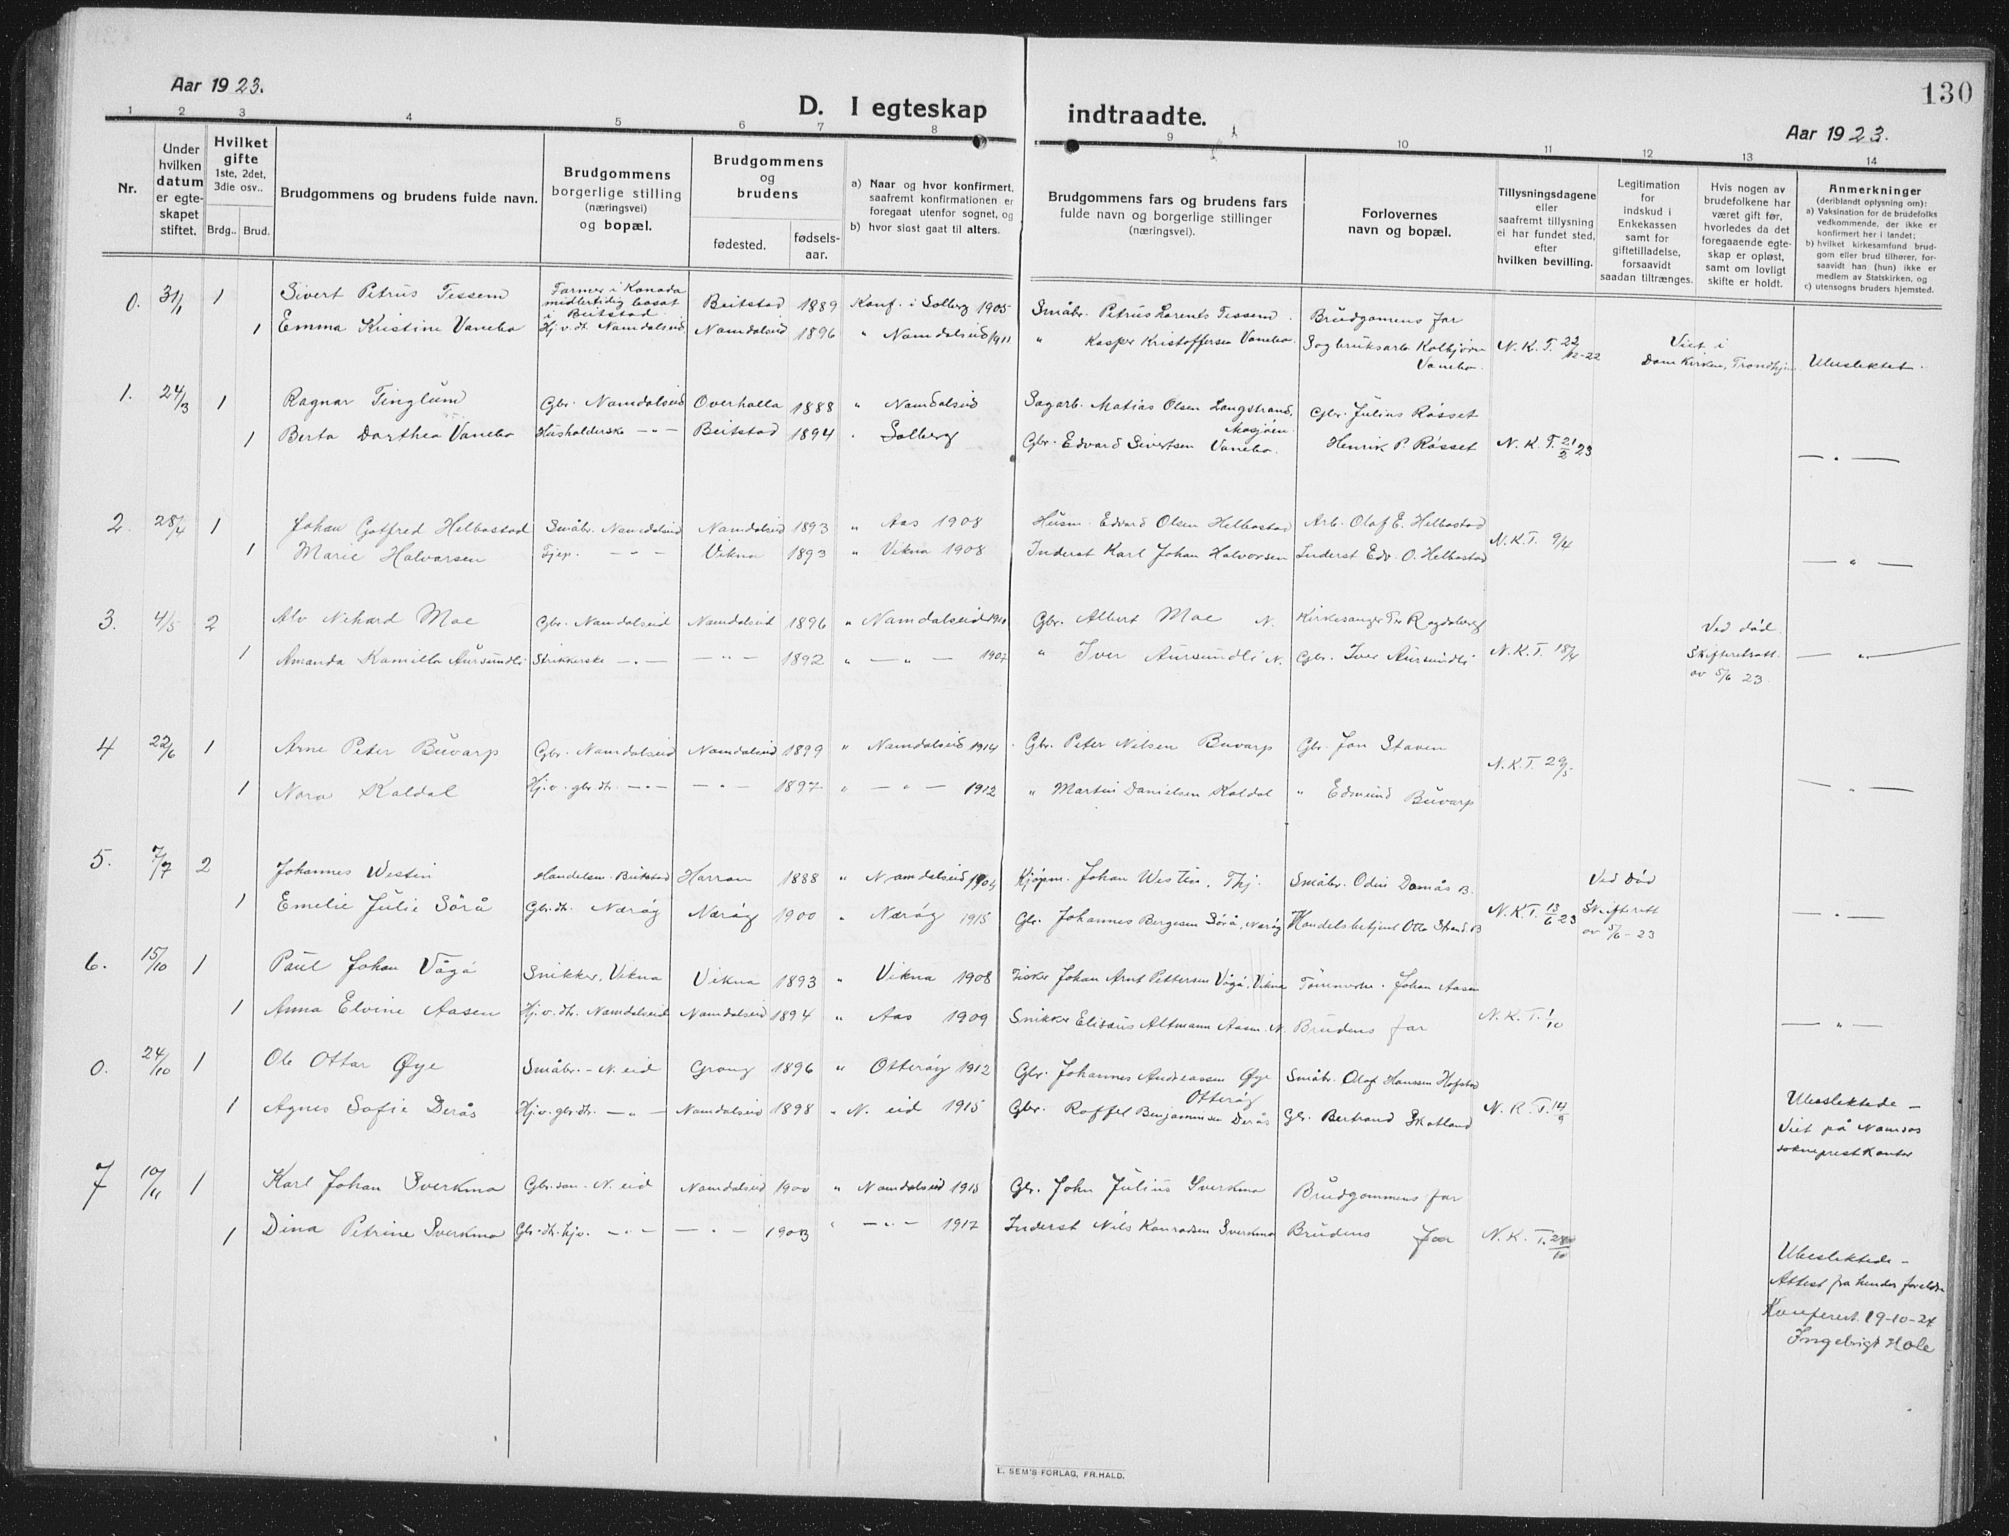 130
Aar 1923.
D. I egteskap indtraadte.
Aar 1923.
1 2 3 4 5 6 7 8 9 10 11 12 13 14
Nr.
Under hvilken datum er egteskapet stiftet.
Hvilket gifte 1ste, 2det, 3die osv..
Brdg.. Brud.
Brudgommens og brudens fulde navn.
Brudgommens borgerlige stilling (næringsvei) og bopæl.
Brudgommens og brudens
fødested. fødselsaar.
a) Naar og hvor konfirmert, saafremt konfirmationen er foregaat utenfor sognet, og
b) hvor sidst gaat til alters.
Brudgommens fars og brudens fars fulde navn og borgerlige stillinger (næringsvei).
Forlovernes navn og bopæl.
Tillysningsdagene eller saafremt tillysning ei har fundet sted, efter hvilken bevilling.
Legitimation for indskud i Enkekassen samt for giftetilladelse, forsaavidt saadan tiltrænges.
Hvis nogen av brudefolkene har været gift før, hvorledes da det foregaaende egteskap er opløst, samt om lovligt skifte er holdt.
Anmerkninger (deriblandt oplysning om):
a) Vaksination for de brudefolks vedkommende, der ikke er konfirmert her i landet;
b) hvilket kirkesamfund brudgom eller brud tilhører, forsaavidt han (hun) ikke er medlem av Statskirken, og
c) utensogns bruders hjemsted.
0. 31/1 1 Sivert Petrus Tessem Farmer i Kanada midlertidig bosat i Beitstad Beitstad 1889 Konf. i Solberg 1905 Småbr. Petrus Lorents Tessem Brudgomens far
1 Emma Kristine Vanebo Hj.v.dt. Namdalseid Namdalseid 1896 " Namdalseid 1911 " Kasper Kristoffersen Vanebo Sagbruksarb. Kolbjørn Vanebo N.K.T. 22/12-22 Viet i Domkirken, Trondhjem Ubeslektet.
1. 24/3 1 Ragnar Tinglum Gbr. Namdalseid Overhalla 1888 " Namdalseid Sagarb. Matias Olsen Langstrand, Mosjøen Gbr. Julius Røsset
1 Berta Dorthea Vanebo Husholderske - " - Beitstad 1894 " Solberg Gbr. Edvard Sivertsen Vanebo. Henrik P. Røsset N.K.T. 21/2 23 — " —
2. 28/4 1 Johan Gotfred Helbostad Småbr. Namdalseid Namdalseid 1893 " Aas 1908 Husm. Edvard Olsen Helbostad Arb. Olaf E. Helbostad
1 Marie Halvorsen Tjen. - " - Vikna 1893 " Vikna 1908 Inderst Karl Johan Halvorsen Inderst Edv. O. Helbostad N.K.T. 9/4 — " —
3. 4/5 2 Alv Nikard Moe Gbr. Namdalseid Namdalseid 1896 " Namdalseid 1910 Gbr. Albert Moe N. Kirkesanger Per Ragdoberg Ved død
1 Amanda Kamilla Aursundli Strikkerske - " - - " - 1892 " - " - 1907 " Iver Aursundli N. Gbr. Iver Aursundli N.K.T. 18/4 Skifteretsatt. av 5/6 23 — " —
4 22/6 1 Arne Peter Buvarp Gbr. Namdalseid Namdalseid 1899 " Namdalseid 1914 Gbr. Peter Nilsen Buvarp Gbr. Jon Staven
1 Nora Kaldal Hj.v. gbr.dtr. - " - - " - 1897 " - " - 1912 " Martin Danielsen Kaldal " Edmund Buvarp N.K.T. 29/5 — " —
5. 7/7 2 Johannes Westin Handelsm. Beitstad Harran 1888 " Namdalseid 1904 Kjøpm. Johan Westin, Thj. Småbr. Odin Domås B. Ved død
1 Emelie Julie Sørå Gbr.dt. Nærøy Nærøy 1900 " Nærøy 1915 Gbr. Johannes Bergesen Sørå, Nærøy Handelsbetjent Otto Strand B N.K.T. 13/6 23 Skifterett av 5/6-23 — " —
6. 15/10 1 Paul Johan Vågå Snikker, Vikna Vikna 1893 " Vikna 1908 Fisker Johan Arnt Pettersen Vågå, Vikna Tømmerm. Johan Aasen
1 Anna Elvine Aasen Hj.v.dtr. Namdalseid Namdalseid 1894 " Aas 1909 Snikker Elisæus Altmann Aasen N. Brudens far N.K.T. 1/10 — " —
0. 24/10 1 Ole Ottar Øye Småbr. - N.eid Grong 1896 " Otterøy 1912 Gbr. Johannes Andreassen Øye Otterøy Småbr. Olaf Hanssen Hofstad
1 Agnes Sofie Derås Hj.v.gbr.dtr. - " - Namdalseid 1898 " N.eid 1915 Gbr. Roffel Benjaminsen Derås Gbr. Bertrand Skatland N.K.T. 14/9 Ubeslektede - Viet på Namsos sokneprestkontor
7 10/11 1 Karl Johan Sverkmo Gbr.søn - N.eid Namdalseid 1900 " Namdalseid 1915 Gbr. John Julius Sverkmo Brudgommens far
1 Dina Petrine Sverkmo Gbr.dtr.hjv. - " - - " - 1903 " - " - 1917 Inderst Nils Konradsen Sverkmo Brudens far N.K.T. 28/10 Ubeslektede -
Attest fra hendes foreldre
Konferert 19-10-24
Ingebrigt Hole
E. SEM'S FORLAG, FR.HALD.